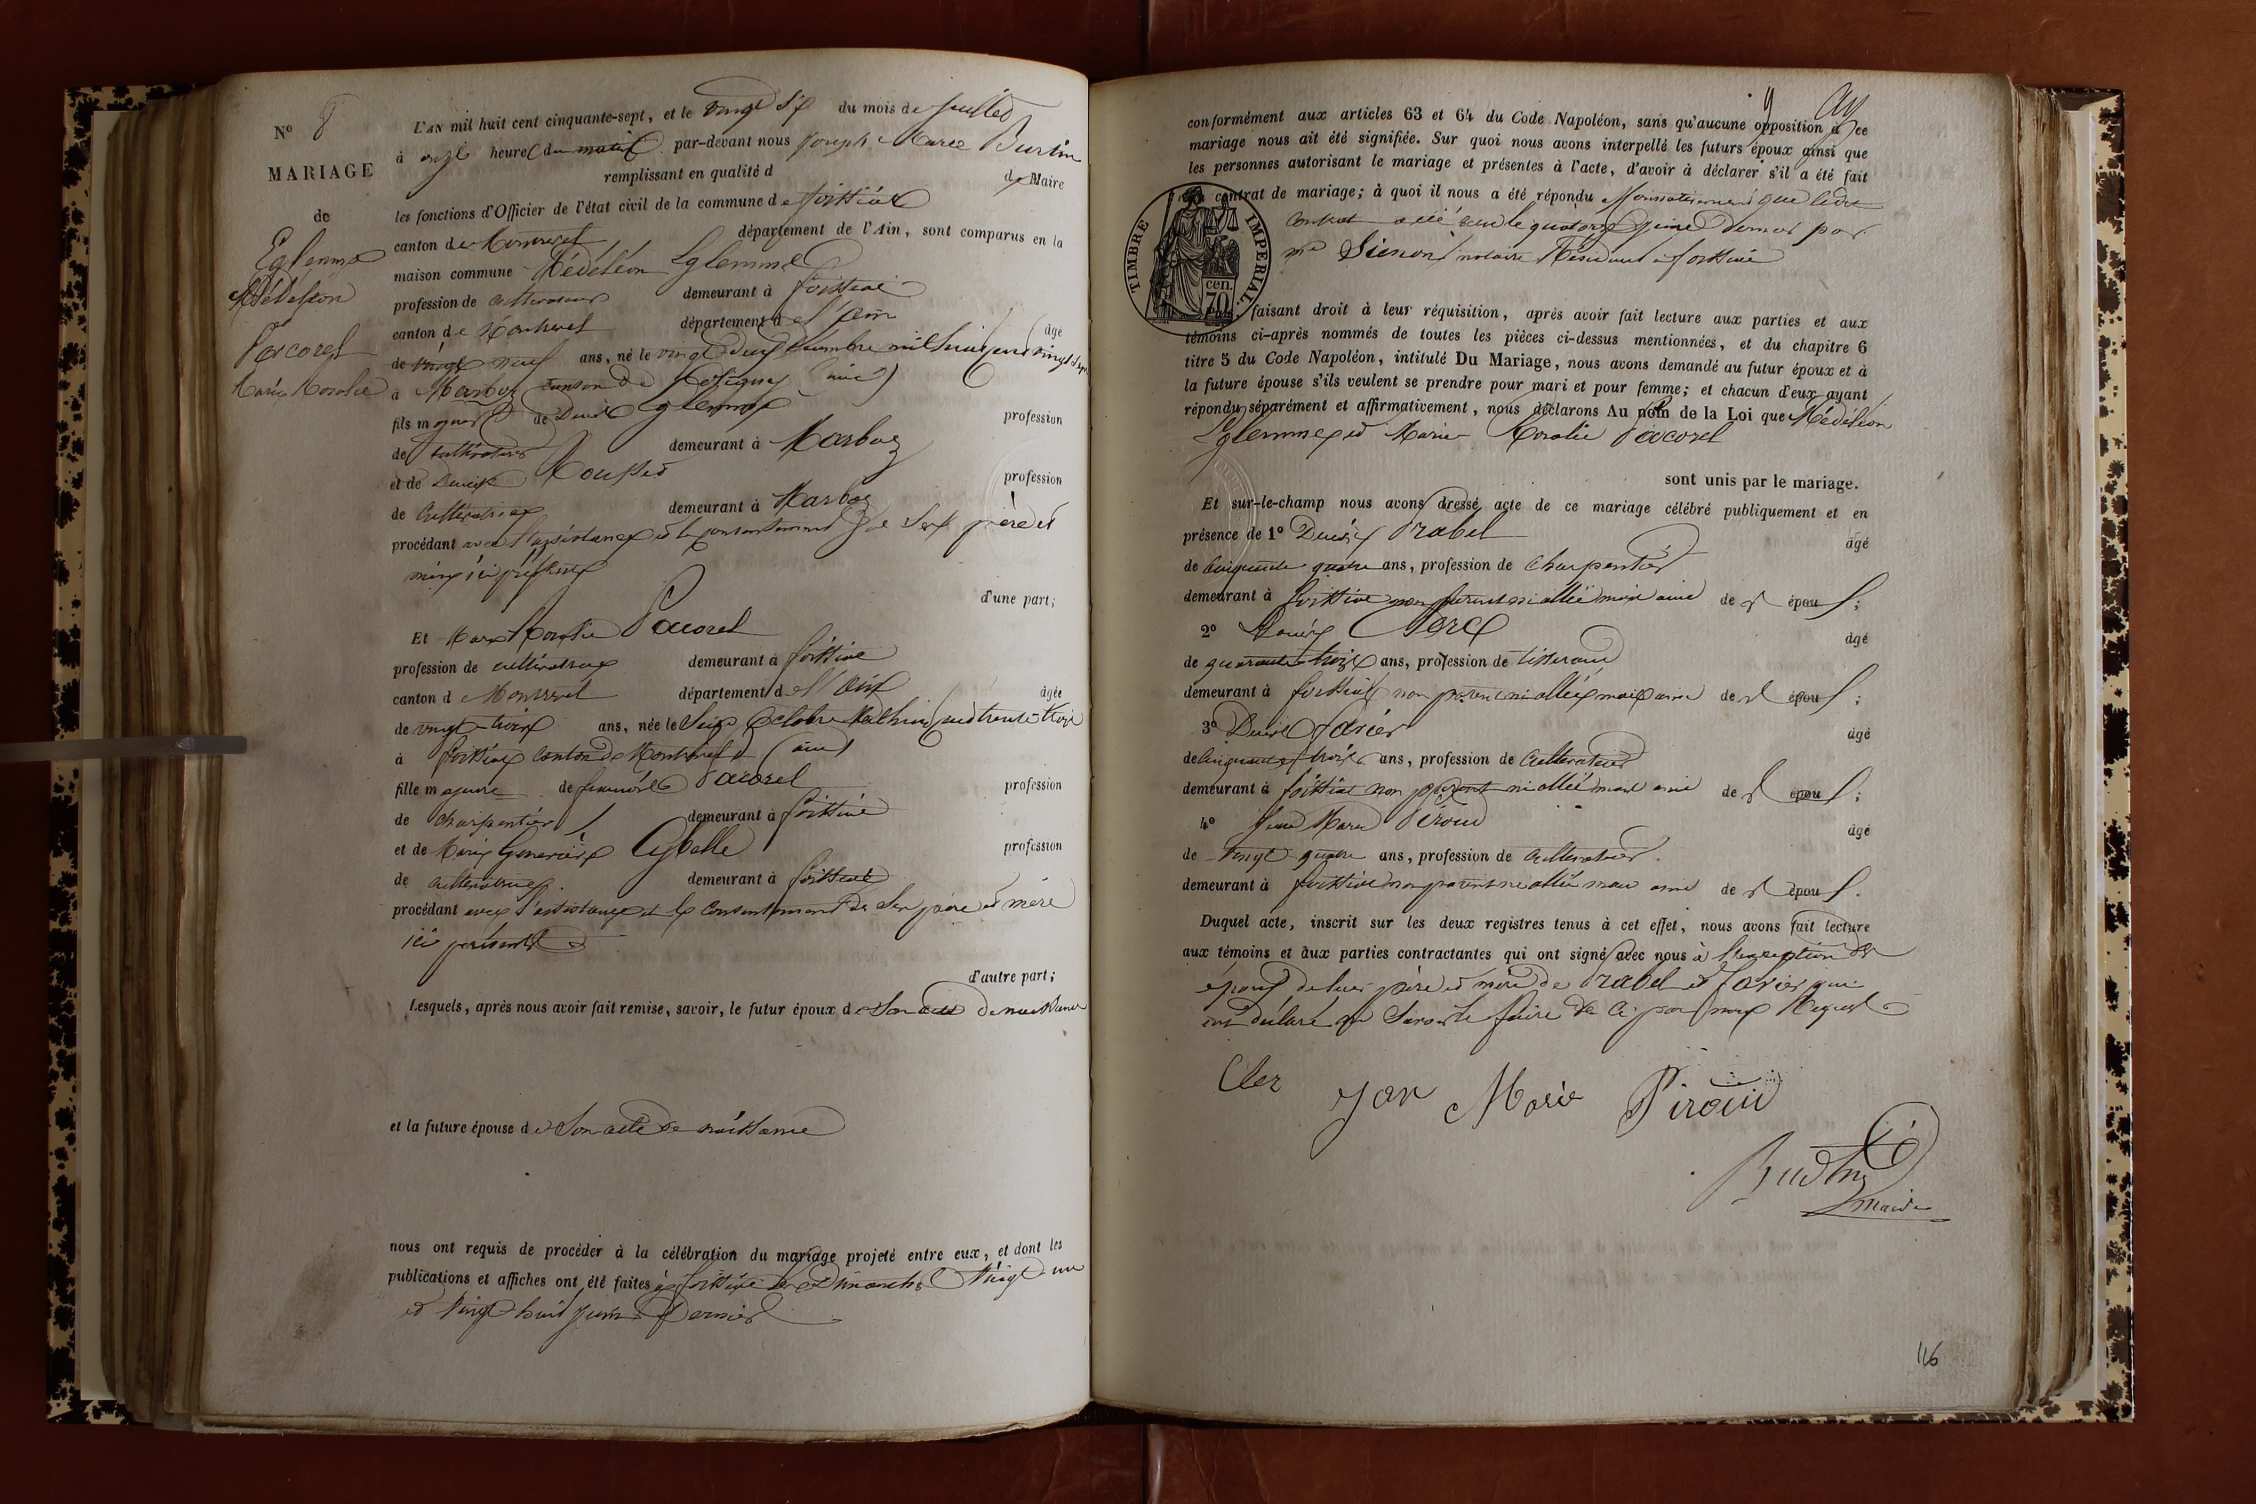 N° 8
MARIAGE
de
Eglemme
Médéléon
Pacoret
Marie Coralie
L'AN mil huit cent cinquante-sept, et le vingt six du mois de juillet
à onze heures du matin par-devant nous Joseph Marie Burtin
remplissant en qualité d de Maire
les fonctions d'Officier de l'état civil de la commune de foissiat
canton de Montrevel département de l'Ain, sont comparus en la
maison commune Médéléon Eglemme
profession de cultivateur demeurant à foissiat
canton de Montrevel département de l'ain
âgé
de vingt neuf ans, né le vingt deux mil huit cent vingt sept
à Marboz canton de Coligny (ain)
fils majeur de Denis Eglemme profession
de cultivateur demeurant à Marboz
et de Denise profession
de cultivatrice demeurant à Marboz
procédant avec l'assistance et le consentement de ses père et
mère ici présents
d'une part;
Et Marie Coralie Pacoret
profession de cultivatrice demeurant à foissiat
canton de Montrevel département de l'ain
âgée
de vingt-trois ans, née le Seize Octobre Mil huit cent trente-trois
à foissiat canton de Montrevel (ain)
fille majeure de Pacoret profession
de charpentier demeurant à foissiat
et de Marie profession
de cultivatrice demeurant à foissiat
procédant avec l'assistance et le consentement de ses père et mère
ici présents
d'autre part;
Lesquels, après nous avoir fait remise, savoir, le futur époux de Son acte de naissance
et la future épouse de Son acte de naissance
nous ont requis de procéder à la célébration du mariage projeté entre eux, et dont les
publications et affiches ont été faites à foissiat les Dimanches Vingt-un
et Vingt-huit juin Dernier
9
conformément aux articles 63 et 64 du Code Napoléon, sans qu'aucune opposition à ce
mariage nous ait été signifiée. Sur quoi nous avons interpellé les futurs époux ainsi que
les personnes autorisant le mariage et présentes à l'acte, d'avoir à déclarer s'il a été fait
un contrat de mariage; à quoi il nous a été répondu affirmativement que ledit
contrat a été reçu le quatorze juin dernier par
me notaire Résidant à foissiat
TIMBRE IMPERIAL.
cen.
70
faisant droit à leur réquisition, après avoir fait lecture aux parties et aux
témoins ci-après nommés de toutes les pièces ci-dessus mentionnées, et du chapitre 6
titre 5 du Code Napoléon, intitulé Du Mariage, nous avons demandé au futur époux et à
la future épouse s'ils veulent se prendre pour mari et pour femme; et chacun d'eux ayant
répondu séparément et affirmativement, nous déclarons Au nom de la Loi que Médéléon
Eglemme et Marie Coralie Pacoret
sont unis par le mariage.
Et sur-le-champ nous avons dressé acte de ce mariage célébré publiquement et en
présence de 1° Denis Prabel âgé
de Cinquante quatre ans, profession de charpentier
demeurant à foissiat non parent ni allié mais ami des époux;
2° Clerc âgé
de quarante trois ans, profession de tisserand
demeurant à foissiat non parent ni allié mais ami des époux;
3° Denis Favier âgé
de cinquante trois ans, profession de cultivateur
demeurant à foissiat non parent ni allié mais ami des époux;
4° Jean Marie Piroud âgé
de vingt quatre ans, profession de cultivateur
demeurant à foissiat non parent ni allié mais ami des époux.
Duquel acte, inscrit sur les deux registres tenus à cet effet, nous avons fait lecture
aux témoins et aux parties contractantes qui ont signé avec nous à l'exception des
époux de leurs père et mère de Prabel et Favier qui
ont déclaré ne Savoir le faire de ce par nous Requis
Cler
Jan Marie Piroud
Burtin
maire
116